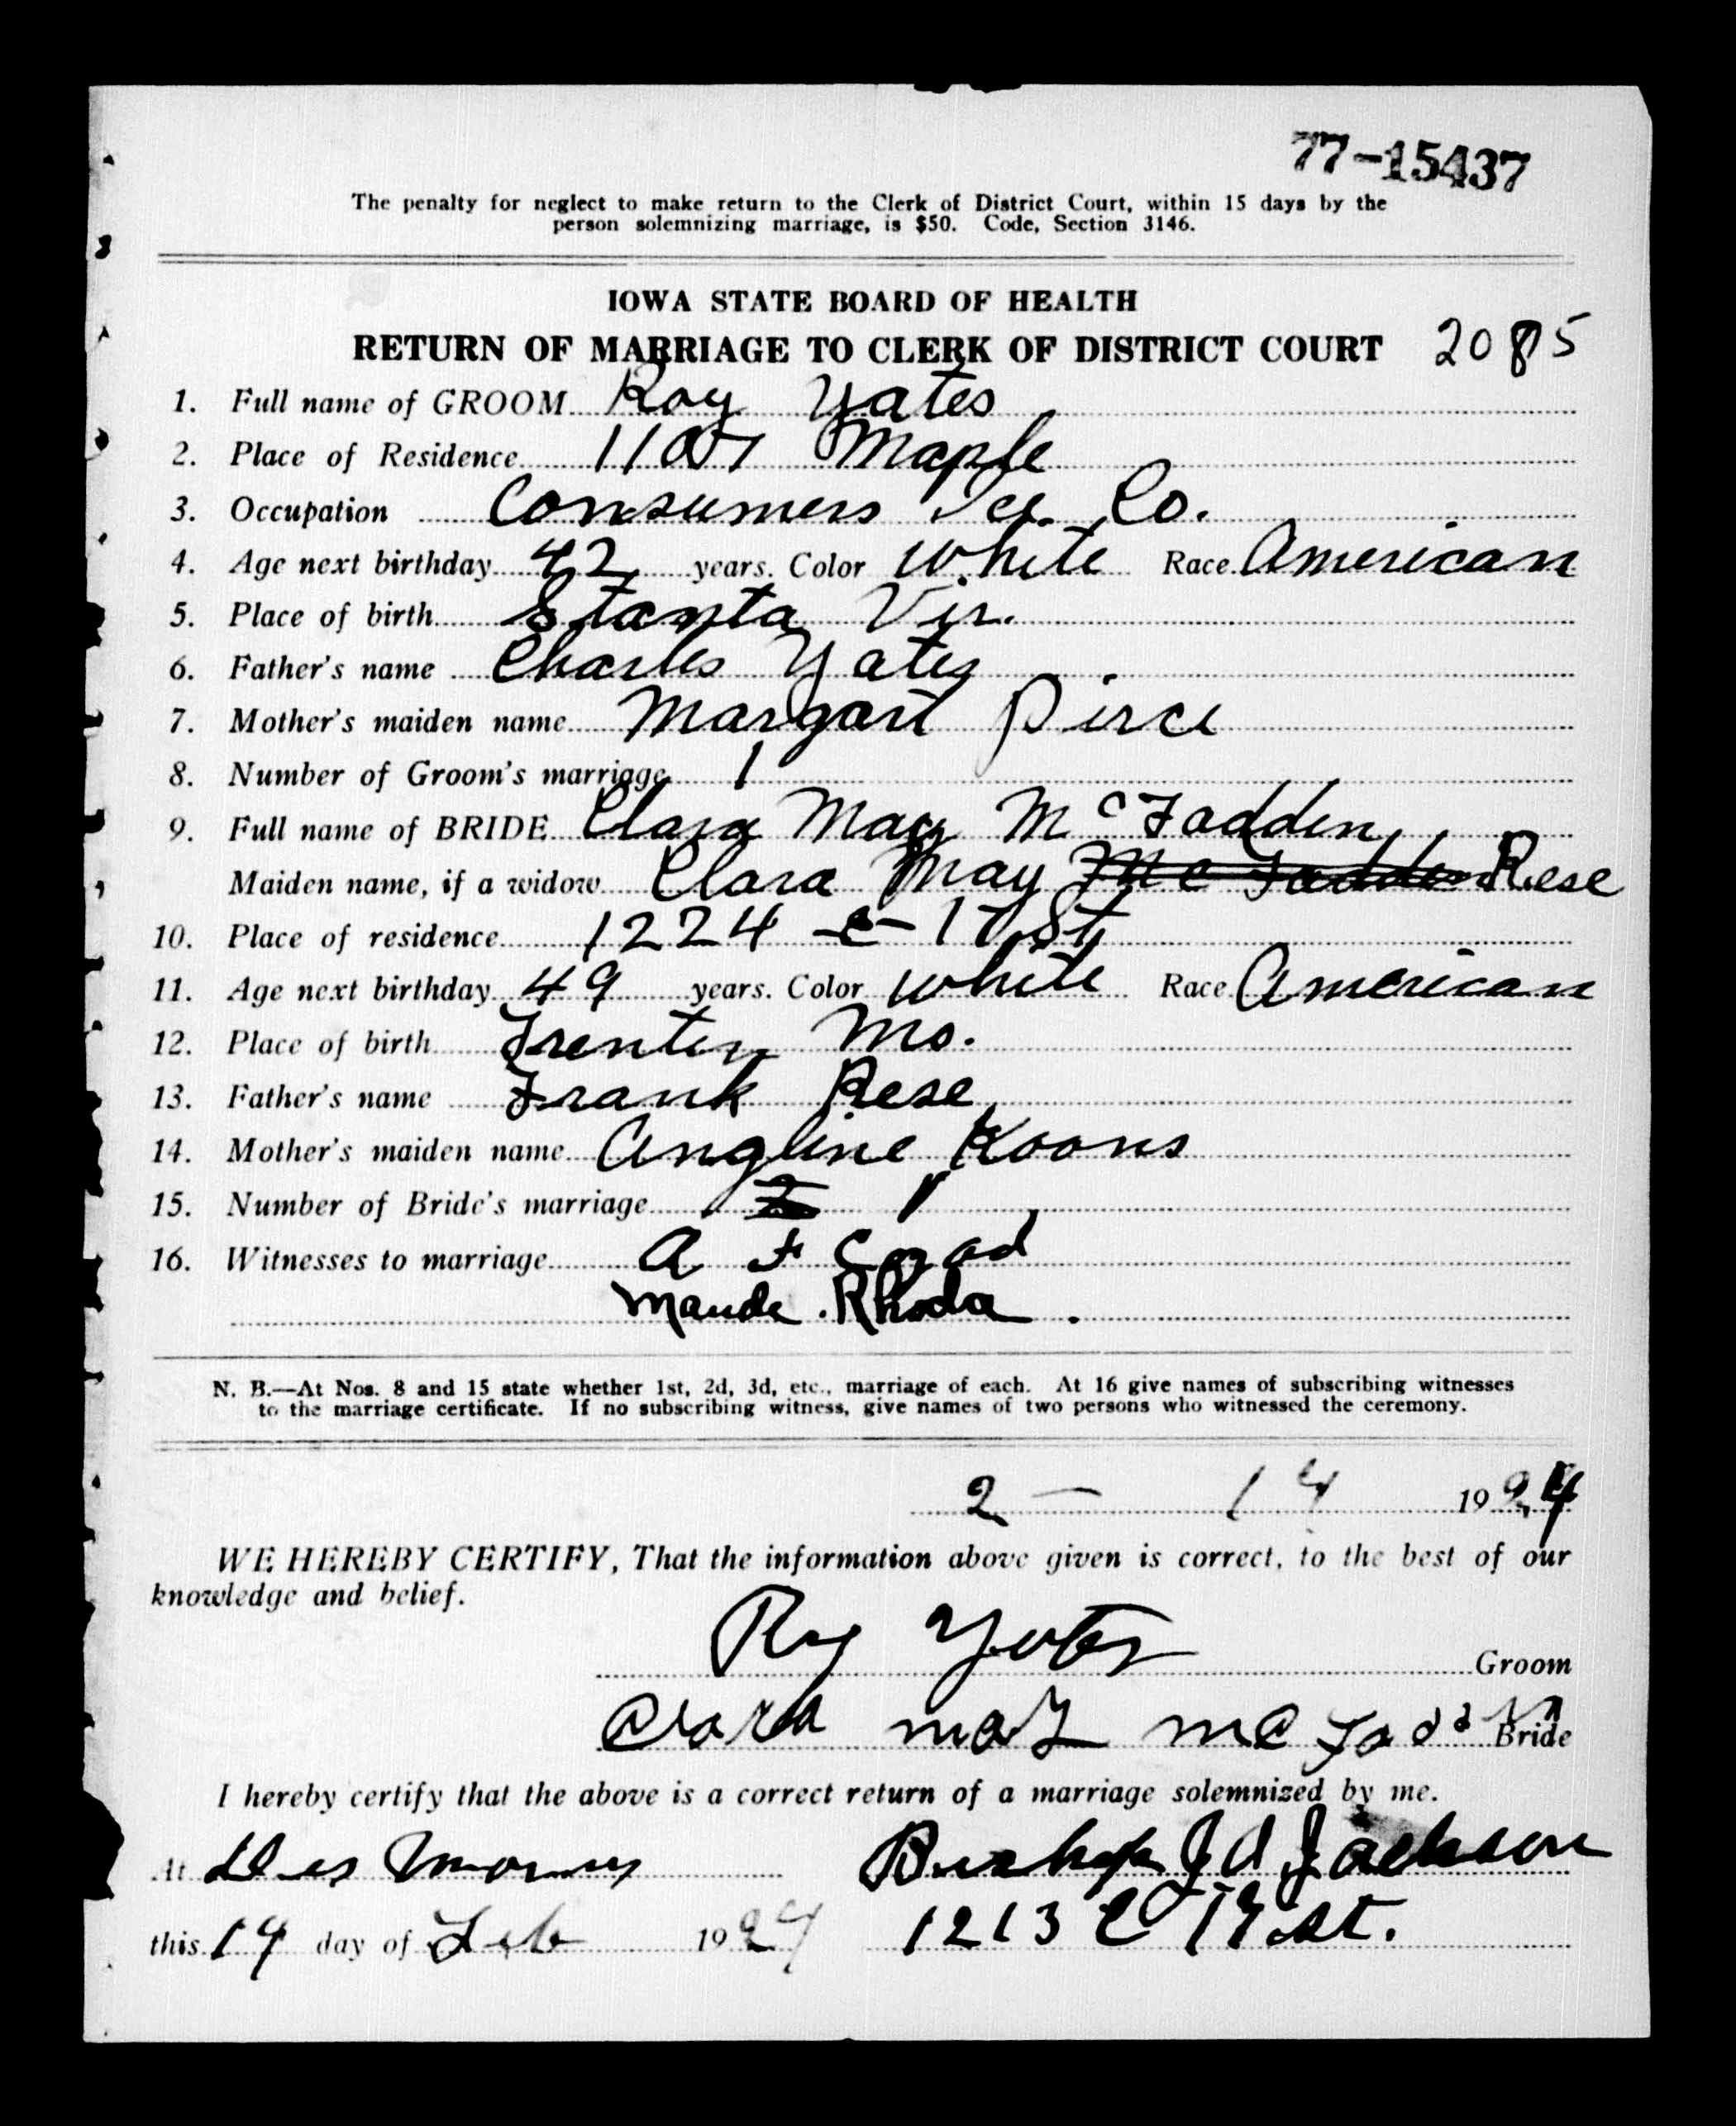 77-15437
The penalty for neglect to make return to the Clerk of District Court, within 15 days by the
person solemnizing marriage, is $50. Code, Section 3146.
IOWA STATE BOARD OF HEALTH
RETURN OF MARRIAGE TO CLERK OF DISTRICT COURT 2085
1. Full name of GROOM Roy Yates
2. Place of Residence 1107 Maple
3. Occupation Consumers Ice Co.
4. Age next birthday 42 years. Color White Race American
5. Place of birth Stanta Vir.
6. Father's name Charles Yates
7. Mother's maiden name Margart Pirce
8. Number of Groom's marriage 1
9. Full name of BRIDE Clara May McFadden
Maiden name, if a widow Clara May McFadden Rese
10. Place of residence 1224 E 17 St
11. Age next birthday 49 years. Color White Race American
12. Place of birth Trenten Mo.
13. Father's name Frank Rese
14. Mother's maiden name Angline Koons
15. Number of Bride's marriage 2 1
16. Witnesses to marriage A F Cozad
Maude Rhoda.
N. B.—At Nos. 8 and 15 state whether 1st, 2d, 3d, etc., marriage of each. At 16 give names of subscribing witnesses
to the marriage certificate. If no subscribing witness, give names of two persons who witnessed the ceremony.
2 - 14 1924
WE HEREBY CERTIFY, That the information above given is correct, to the best of our
knowledge and belief.
Roy Yates Groom
Clara May McFadden Bride
I hereby certify that the above is a correct return of a marriage solemnized by me.
At Des Moines Bishop J A Jackson
this 14 day of Feb 1924 1213 E 17 st.